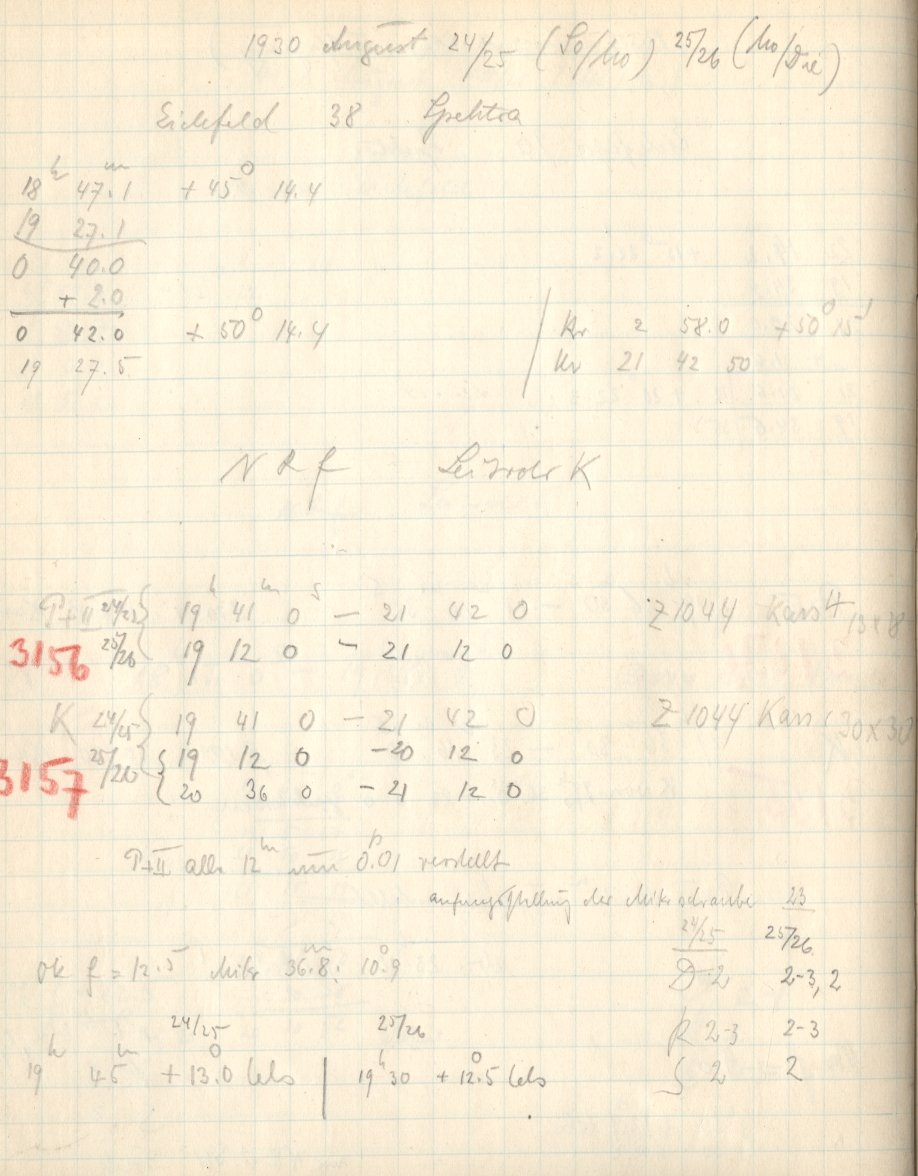 1930 August 24/25 (So/Mo) 25/26 (Mo/Die)
Eichfeld 38 Spektra
18h 47m.1 +45° 14.4
19 27.1
0 40.0
+ 2.0
0 42.0 + 50° 14.4
19 27.5
Kr 2 58.0 +50° 15'
Kr 21 42 50
N R f K
P+II 24/25 19h 41m 0s - 21 42 0 Z 1044 Kass 4 13x18
3156 25/26 19 12 0 - 21 12 0
K 24/25 19 41 0 - 21 42 0 Z 1044 Kass (30x30)
3157 25/26 19 12 0 -20 12 0
20 36 0 - 21 12 0
P+II alle 12m um 0.01 verstellt
Anfangsstellung der Mikroschraube 23
24/25 25/26
Ok f = 12.5 Mikr 36m.8: 10°.9
D 2 2-3, 2
24/25 25/26
R 2-3 2-3
19h 45m +13°.0 Cels | 19h 30 + 12°.5 Cels
S 2 2